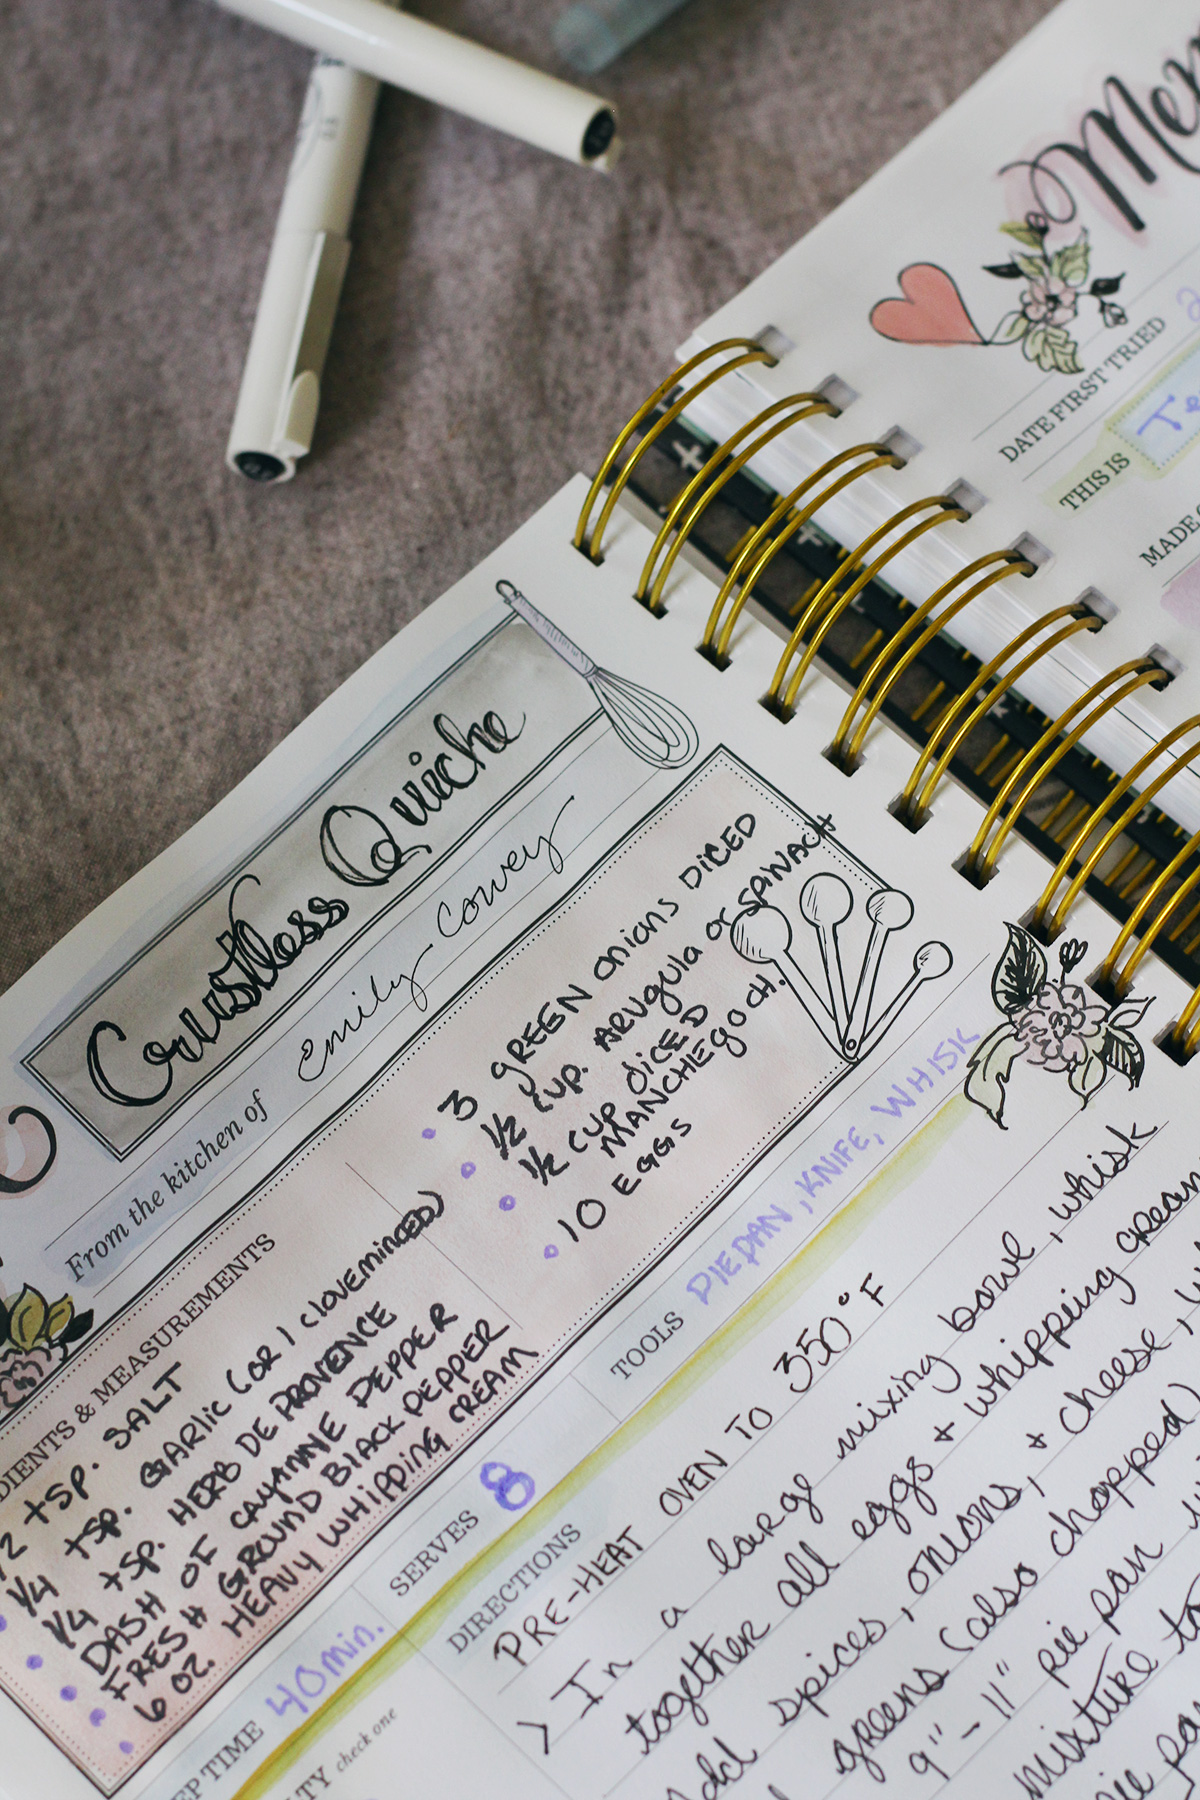 Crustless Quiche
From the kitchen of Emily Cowey
DIENTS & MEASUREMENTS
1/2 tsp. SALT
1/4 tsp. GARLIC (OR 1 CLOVE MINCED)
1/4 tsp. HERB DE PROVENCE
DASH OF CAYANNE PEPPER
FRESH GROUND BLACK PEPPER
6 OZ. HEAVY WHIPPING CREAM
3 GREEN Onions DICED
1/2 CUP. ARUgula or SPINACH
1/2 CUP DICED
MANCHEGO CH.
10 EGGS
EP TIME 40 min.
SERVES 8
TOOLS PIE PAN, KNIFE, WHISK
TY check one
DIRECTIONS
PRE-HEAT OVEN TO 350° F
> In a large mixing bowl, whisk
together all eggs + whipping cream
Add spices, onions, + cheese,
greens (also chopped)
9" - 11" pie pan
mixture to
pie
DATE FIRST TRIED
THIS IS
MADE